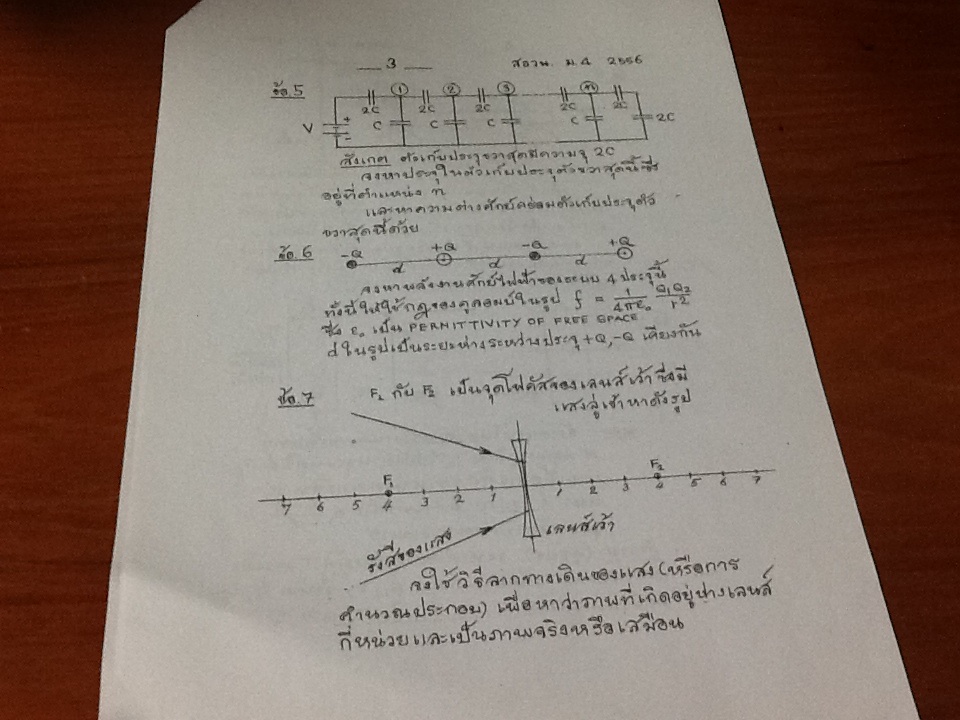 3 สอวน. ม.4 2556
ข้อ.5
1 2 3 n
2C 2C 2C 2C 2C
V + - C C C C 2C
สังเกต ตัวเก็บประจุขวาสุดมีความจุ 2C
จงหาประจุในตัวเก็บประจุตัวขวาสุดนี้ซึ่ง
อยู่ที่ตำแหน่ง n
และหาความต่างศักย์คร่อมตัวเก็บประจุตัว
ขวาสุดนี้ด้วย
ข้อ.6 -Q +Q -Q +Q
d d d
จงหาพลังงานศักย์ไฟฟ้าของระบบ 4 ประจุนี้
ทั้งนี้ให้ใช้กฎของคูลอมบ์ในรูป f = 1/4πε₀ Q₁Q₂/r²
ซึ่ง ε₀ เป็น PERMITTIVITY OF FREE SPACE
d ในรูปเป็นระยะห่างระหว่างประจุ +Q,-Q เคียงกัน
ข้อ.7 F₁ กับ F₂ เป็นจุดโฟกัสของเลนส์เว้า ซึ่งมี
แสงลู่เข้าหาดังรูป
F₁ F₂
7 6 5 4 3 2 1 1 2 3 4 5 6 7
รังสีของแสง เลนส์เว้า
จงใช้วิธีลากทางเดินของแสง (หรือการ
คำนวณประกอบ) เพื่อหาว่าภาพที่เกิดอยู่ห่างเลนส์
กี่หน่วยและเป็นภาพจริงหรือเสมือน